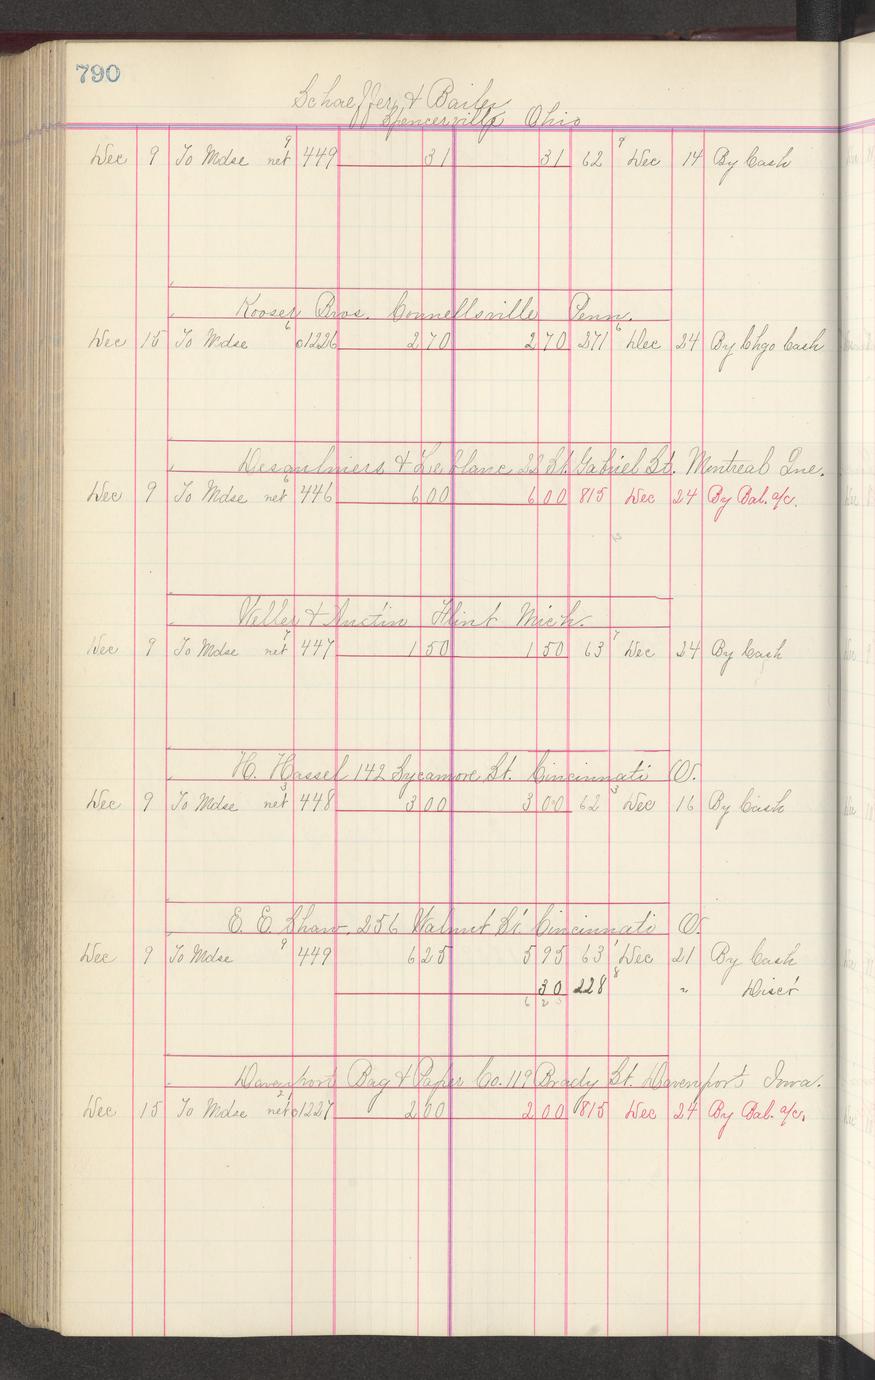 790
Schaeffer & Bailey
Spencerville Ohio
Dec 9 To Mdse net 9 449 31 31 62 9 Dec 14 By Cash
Kooser Bros. Connellsville Penn.
Dec 15 To Mdse 6 c1226 2 70 2 70 271 6 Dec 24 By Chgo Cash
Desaulniers & Le blanc 22 St. Gabriel St. Montreal Que.
Dec 9 To Mdse net 6 446 6 00 6 00 815 Dec 24 By Bal. a/c.
Veller & Austin Flint Mich.
Dec 9 To Mdse net 7 447 1 50 1 50 63 7 Dec 24 By Cash
H. Hassel 142 Sycamore St. Cincinnati O.
Dec 9 To Mdse net 3 448 3 00 3 00 62 3 Dec 16 By Cash
E. E. Shaw, 256 Walnut St. Cincinnati O.
Dec 9 To Mdse 9 449 6 25 5 95 63 1 Dec 21 By Cash
30 228 8 " Disct
6 25
Davenport Bag & Paper Co. 119 Brady St. Davenport Iowa.
Dec 15 To Mdse net 2 c1227 2 00 2 00 815 Dec 24 By Bal. a/c.